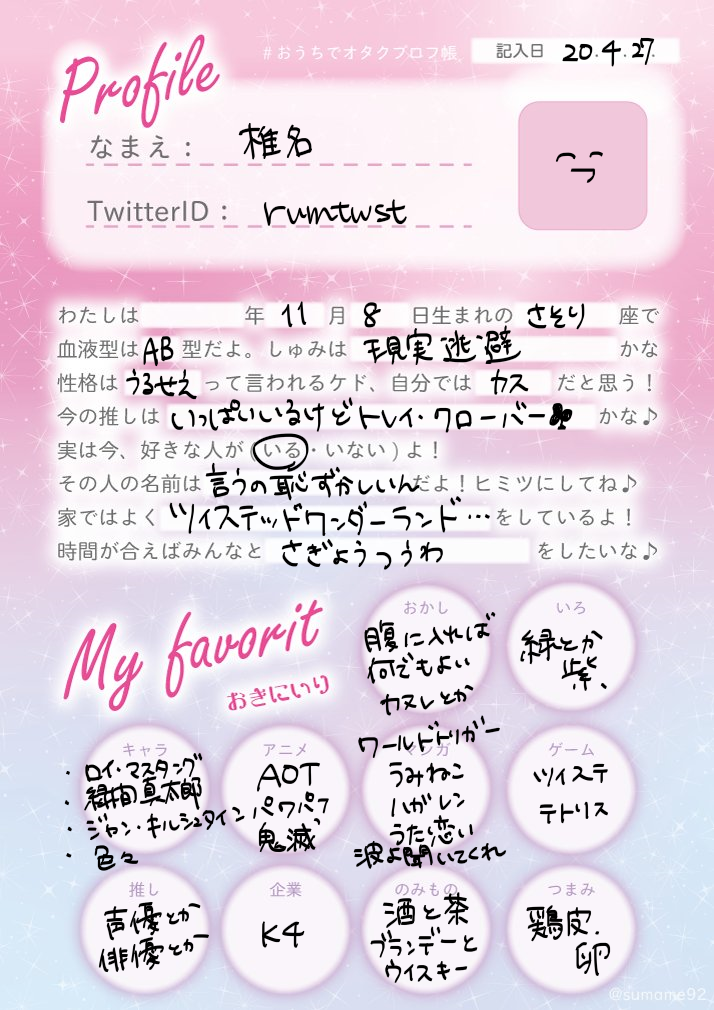 #おうちでオタクプロフ帳 記入日 20.4.27.
Profile
なまえ： 椎名
TwitterID： rumtwst
わたしは 年 11 月 8 日生まれの さそり 座で
血液型は AB 型だよ。しゅみは 現実逃避 かな
性格は うるせえ って言われるケド、自分では カス だと思う！
今の推しは いっぱいいるけどトレイ・クローバー♣ かな♪
実は今、好きな人が ( いる・いない ) よ！
その人の名前は 言うの恥ずかしいん だよ！ヒミツにしてね♪
家ではよく ツイステッドワンダーランド… をしているよ！
時間が合えばみんなと さぎょうつうわ をしたいな♪
My favorit
おきにいり
おかし
腹に入れば
何でもよい
カヌレとか
いろ
緑とか
紫、
キャラ
・ロイ・マスタング
・緑間真太郎
・ジャン・キルシュタイン
・色々
アニメ
AOT
パワパフ
鬼滅
マンガ
ワールドトリガー
うみねこ
ハガレン
うた恋い
波よ聞いてくれ
ゲーム
ツイステ
テトリス
推し
声優とか
俳優とか
企業
K4
のみもの
酒と茶
ブランデーと
ウイスキー
つまみ
鶏皮.
卵
@sumame92